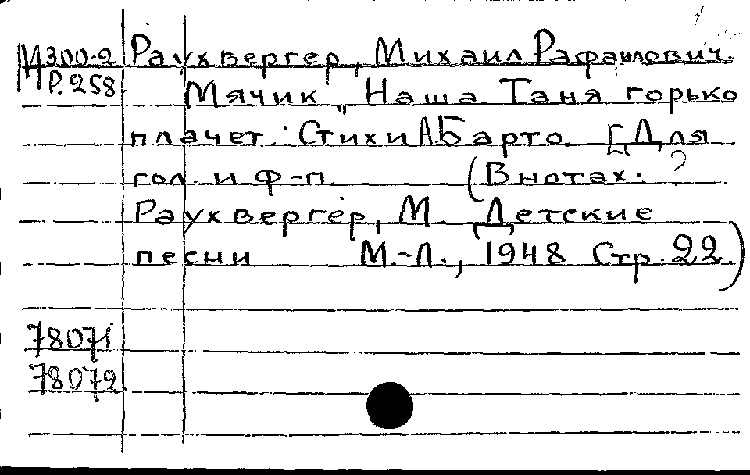 М300-2 Раухвергер, Михаил Рафаилович.
Р.258 Мячик „Наша Таня горько
плачет. Стихи А Барто. [Для
гол. и ф-п (В нотах:
Раухвергер, М. Детские
песни М.-Л., 1948 Стр. 22)
78071
78072